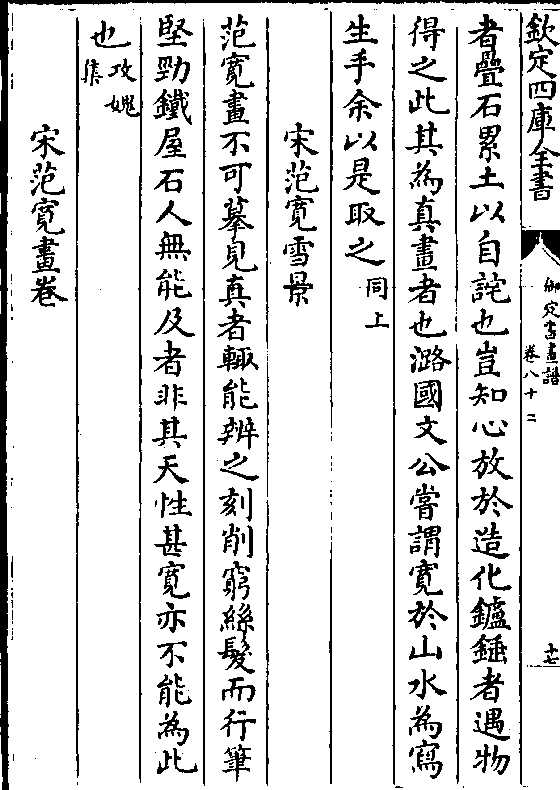 欽定四庫全書
御定書畫譜
卷八十二
十七
者疊石累土以自詫也豈知心放於造化鑪錘者遇物
得之此其為真畫者也潞國文公嘗謂寛於山水為寫
生手余以是取之同上
宋范寛雪景
范寛畫不可摹見真者輒能辨之刻削窮絲髮而行筆
堅勁鐵屋石人無能及者非其天性甚寛亦不能為此
也攻媿集
宋范寛畫卷